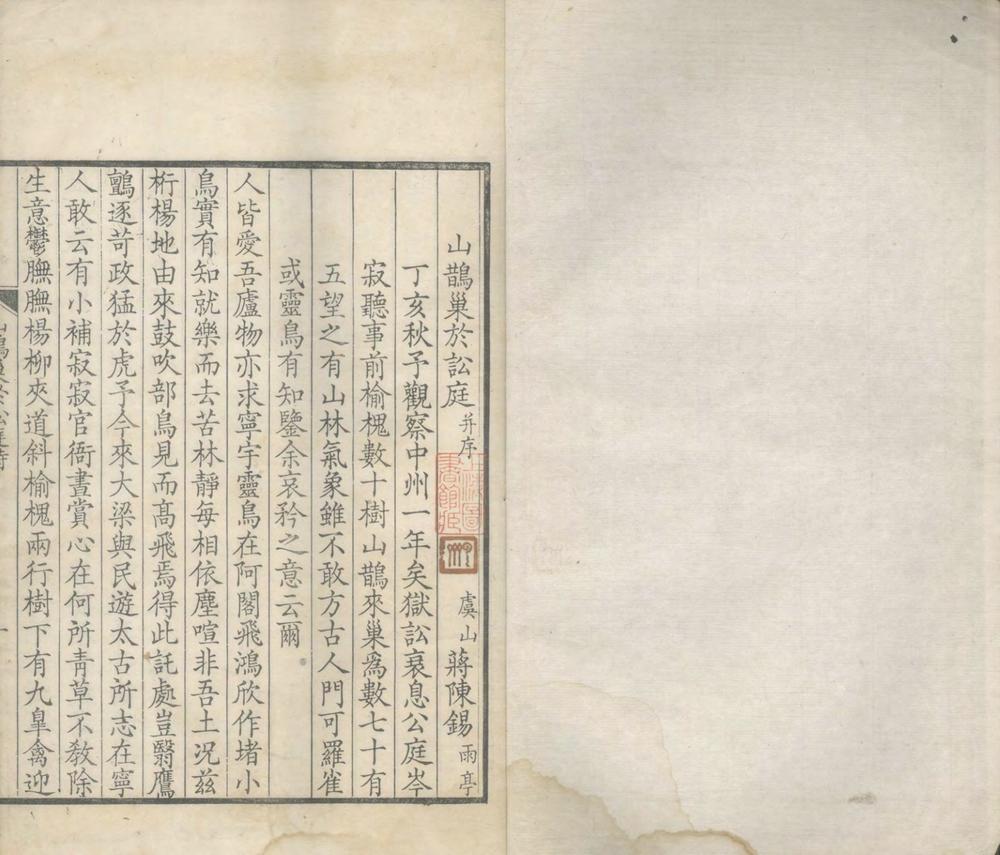 山鵲巢於訟庭并序 虞山蔣陳錫雨亭
丁亥秋予觀察中州一年矣獄訟衰息公庭岑
寂聽事前榆槐數十樹山鵲來巢爲數七十有
五望之有山林氣象雖不敢方古人門可羅雀
或靈鳥有知鑒余哀矜之意云爾
人皆愛吾廬物亦求寧宇靈鳥在阿閣飛鴻欣作堵小
鳥實有知就樂而去苦林靜每相依塵喧非吾土況茲
桁楊地由來鼓吹部鳥見而高飛焉得此託處豈翳鷹
鸇逐苛政猛於虎予今來大梁與民遊太古所志在寧
人敢云有小補寂寂官衙晝賞心在何所青草不教除
生意鬱膴膴楊柳夾道斜榆槐兩行樹下有九皐禽迎
上海圖書館藏